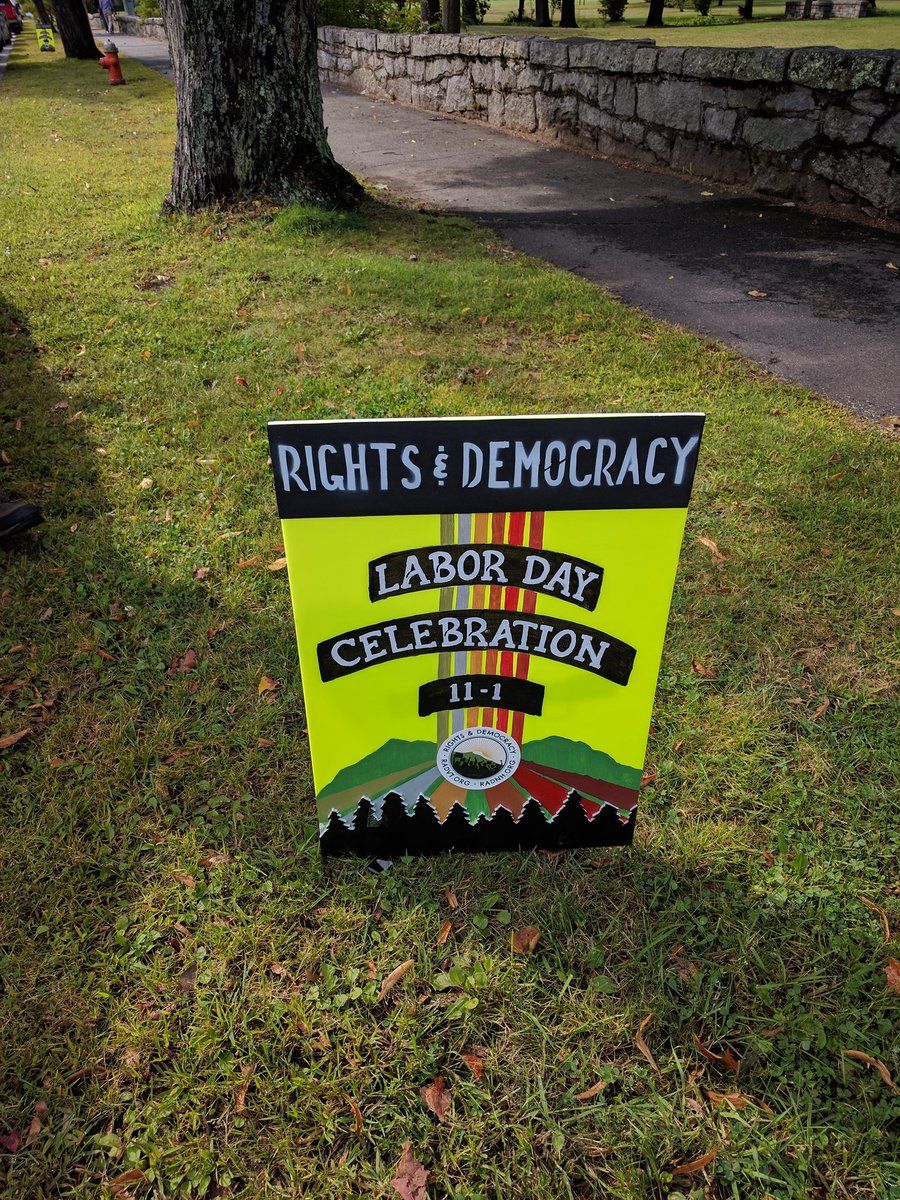 RIGHTS & DEMOCRACY
LABOR DAY
CELEBRATION
11-1
RIGHTS & DEMOCRACY
RADVT.ORG · RADNH.ORG